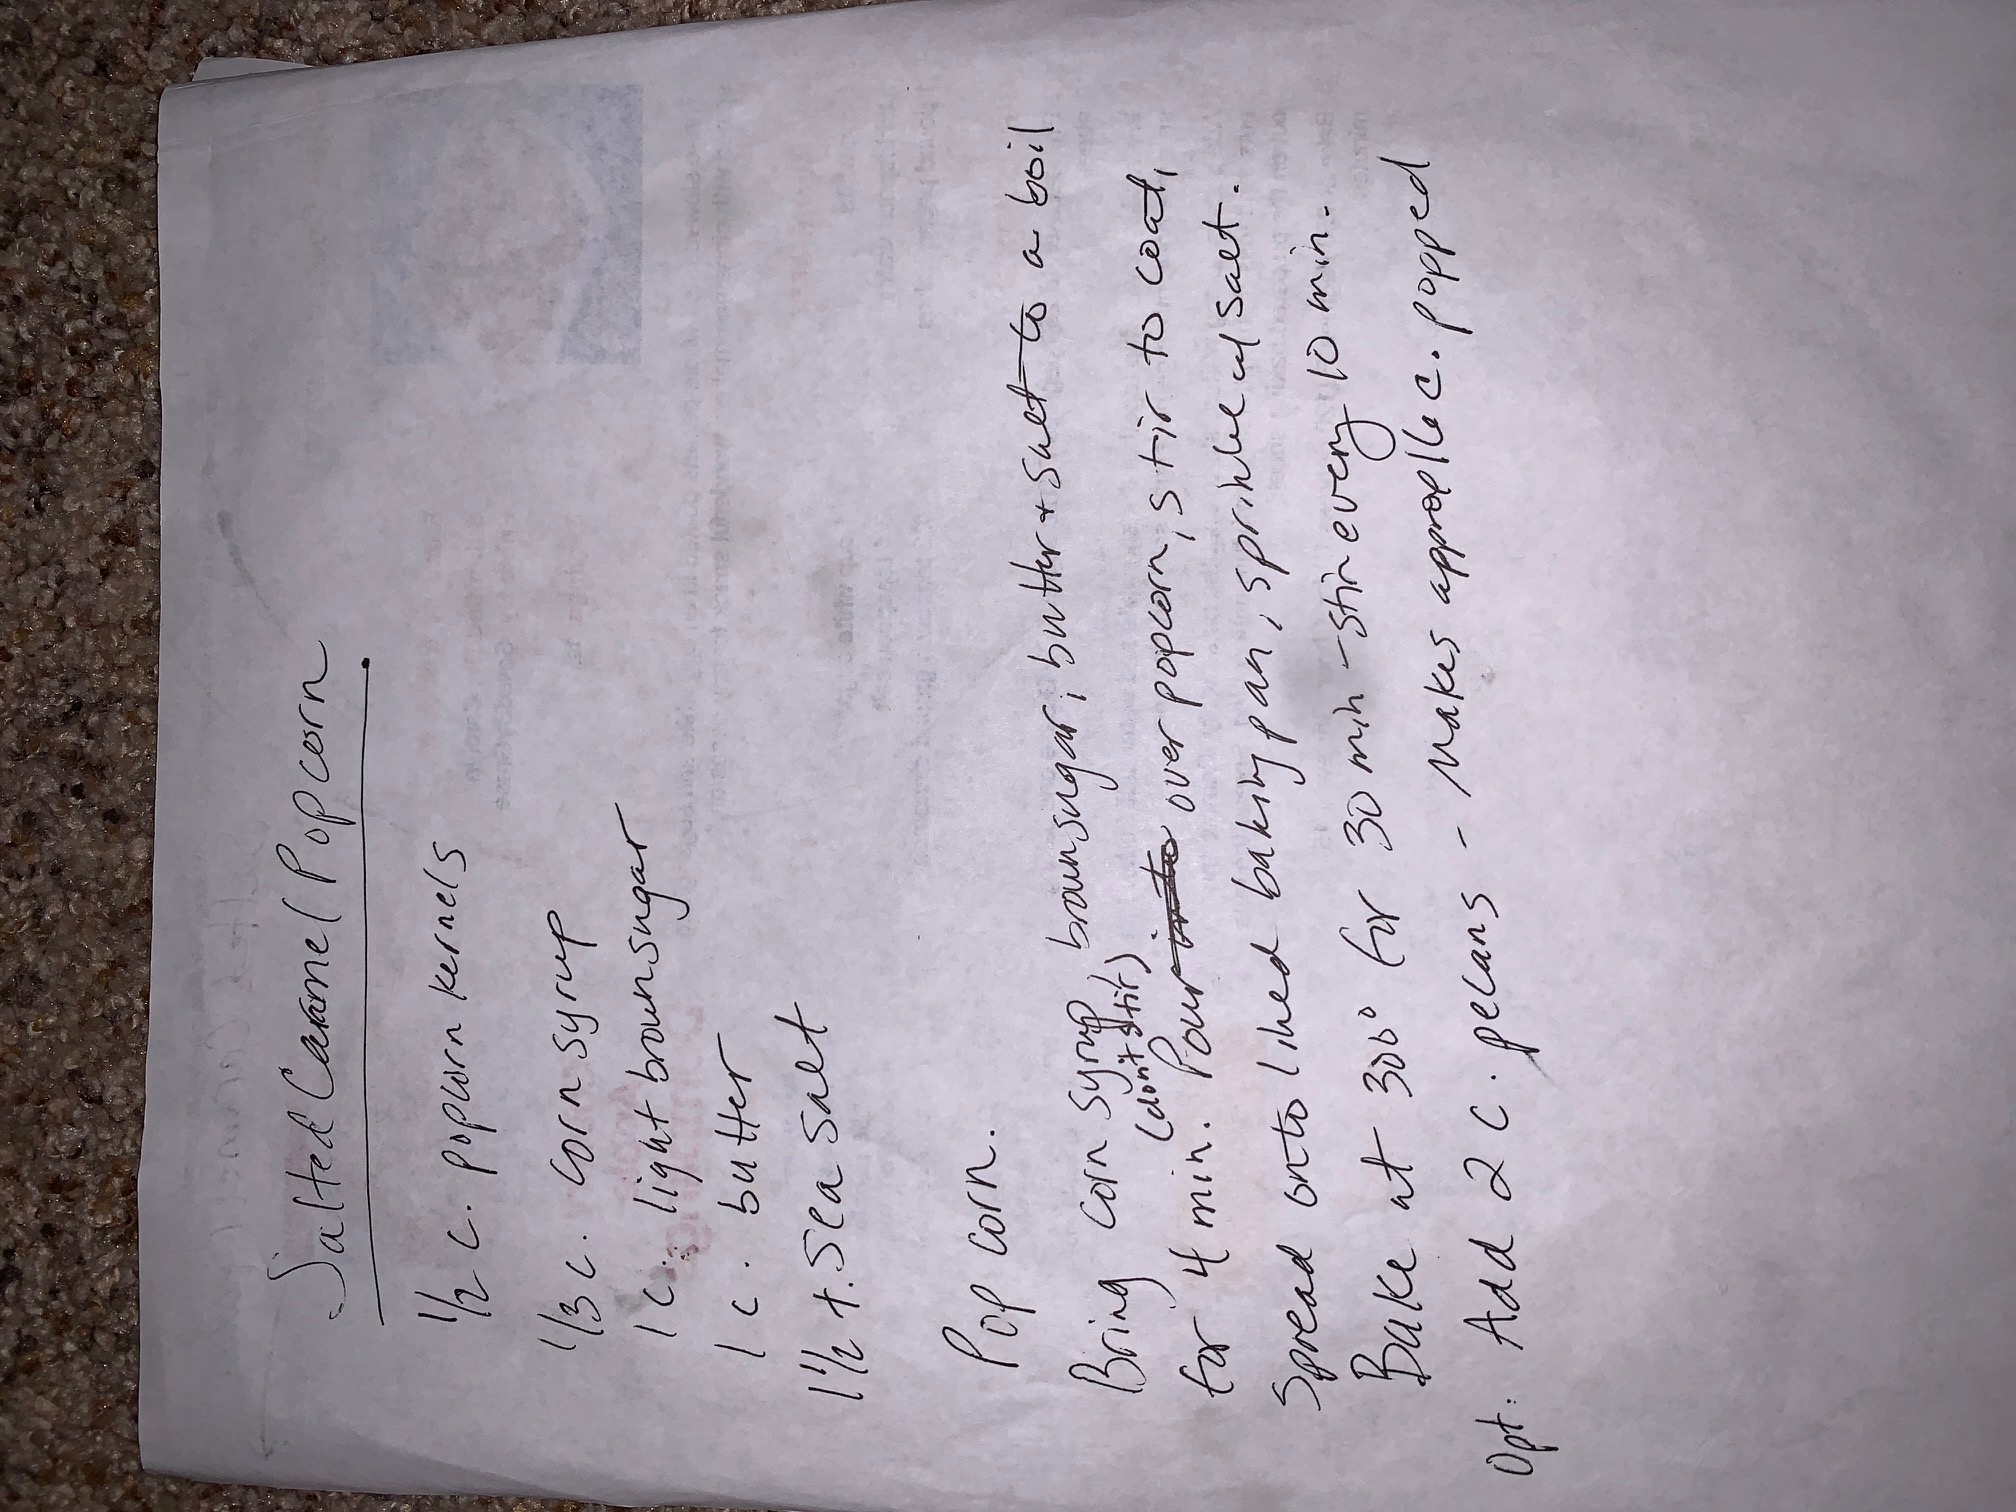 Salted Caramel Popcorn
1/2 c. popcorn kernels
1/3 c. corn syrup
1 c. light brown sugar
1 c. butter
1 1/2 t. sea salt
Pop corn.
Bring corn syrup, brown sugar, butter + salt to a boil
(don't stir)
for 4 min. Pour into over popcorn, stir to coat,
Spread onto lined baking pan, sprinkle w/ salt.
Bake at 300° for 30 min - stir every 10 min.
Opt. Add 2 c. pecans - Makes approx 16 c. popped